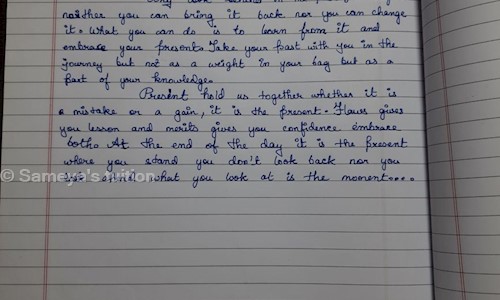 neither you can bring it back nor you can change
it. What you can do is to learn from it and
embrace your present. Take your past with you in the
journey but not as a wright in your bag but as a
part of your knowledge.
Present hold us together whether it is
a mistake or a gain, it is the present. Flaws gives
you lesson and merits gives you confidence embrace
both. At the end of the day it is the present
where you stand you don't look back nor you
© Sameya's tuition
what you look at is the moment....